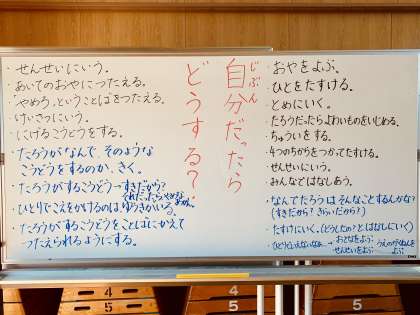 じぶん
自分だったら
どうする？
・おやをよぶ。
・ひとをたすける。
・とめにいく。
・たろうだったらよわいものをいじめる。
・ちゅういをする。
・4つのちからをつかってたすける。
・せんせいにいう。
・みんなではなしあう。
・なんでたろうはそんなことするんかな？
（すきだから？きらいだから？）
・たすけにいく。（どうしたの？とはなしにいく）
・ひとりでいえないなあ…→おとなをよぶ
せんせいをよぶ
うえのがくねんをよぶ
・せんせいにいう。
・あいてのおやにつたえる。
・「やめろ」ということばをつたえる。
・けいさつにいう。
・にげるこうどうをする。
・たろうがなんで、そのような
こうどうをするのか、きく。
・たろうがするこうどう→すきだから？
・ひとりでこえをかけるのは、ゆうきがいる。
・たろうがするこうどうをことばにかえて
つたえられるようにする。
4
5
4
5